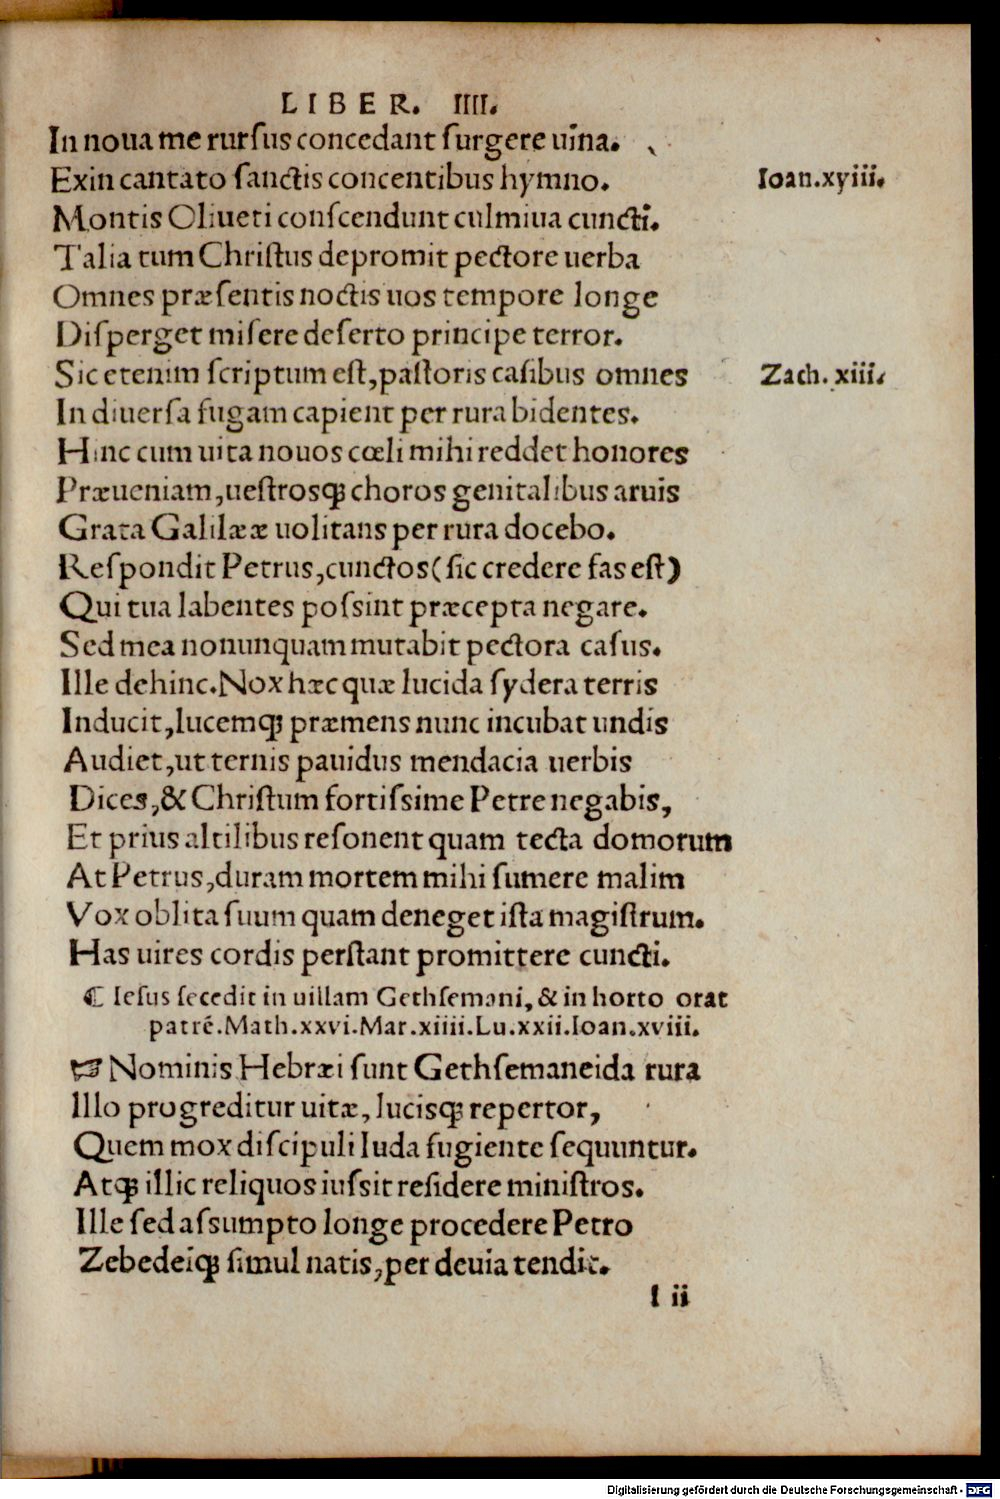 LIBER. IIII.
In noua me rursus concedant surgere uina.
Exin cantato sanctis concentibus hymno.
Ioan.xyiii.
Montis Oliueti conscendunt culmiua cuncti.
Talia tum Christus depromit pectore uerba
Omnes præsentis noctis uos tempore longe
Disperget misere deserto principe terror.
Sic etenim scriptum est, pastoris casibus omnes
Zach. xiii.
In diuersa fugam capient per rura bidentes.
Hinc cum uita nouos cœli mihi reddet honores
Præueniam, uestrosq; choros genitalibus aruis
Grata Galilææ uolitans per rura docebo.
Respondit Petrus, cunctos (sic credere fas est)
Qui tua labentes possint præcepta negare.
Sed mea nonunquam mutabit pectora casus.
Ille dehinc. Nox hæc quæ lucida sydera terris
Inducit, lucemq; præmens nunc incubat undis
Audiet, ut ternis pauidus mendacia uerbis
Dices, & Christum fortissime Petre negabis,
Et prius altilibus resonent quam tecta domorum
At Petrus, duram mortem mihi sumere malim
Vox oblita suum quam deneget ista magistrum.
Has uires cordis perstant promittere cuncti.
⁌ Iesus secedit in uillam Gethsemani, & in horto orat
patrē. Math.xxvi. Mar.xiiii. Lu.xxii. Ioan.xviii.
☞ Nominis Hebræi sunt Gethsemaneida rura
Illo progreditur uitæ, lucisq; repertor,
Quem mox discipuli Iuda fugiente sequuntur.
Atq; illic reliquos iussit residere ministros.
Ille sed assumpto longe procedere Petro
Zebedeiq; simul natis, per deuia tendit.
I ii
Digitalisierung gefördert durch die Deutsche Forschungsgemeinschaft - DFG